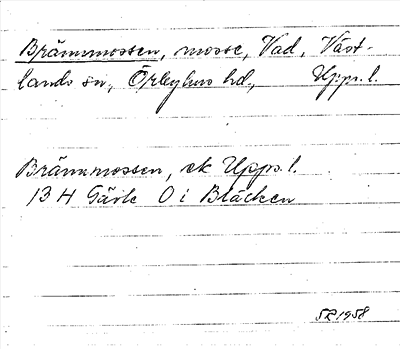 Brämmossen, mosse, Vad, Väst-
lands sn, Örbyhus hd., Upps. l.
Brämmossen, ek Upps. l.
13 H Gävle O i Bläcken
SR 1958